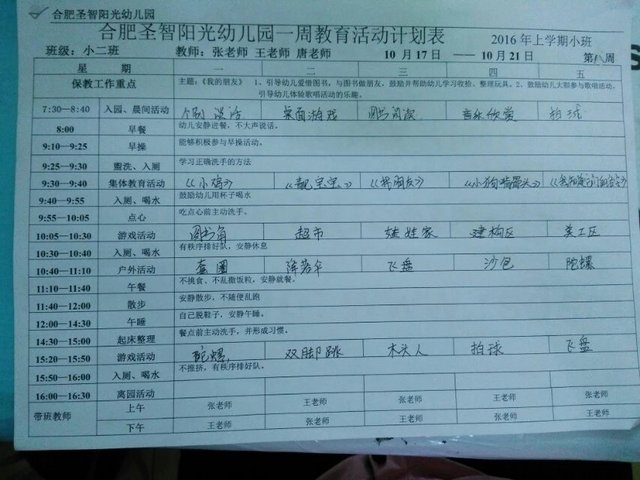 合肥圣智阳光幼儿园
合肥圣智阳光幼儿园一周教育活动计划表 2016年上学期小班
班级：小二班 教师：张老师 王老师 唐老师 10月17日 ——10月21日 第八周
星期 一 二 三 四 五
保教工作重点 主题：《我的朋友》 1、引导幼儿爱惜图书，与图书做朋友，鼓励并帮助幼儿学习收拾、整理玩具。2、鼓励幼儿大胆参与歌唱活动，
引导幼儿体验歌唱活动的乐趣。
7:30—8:40 入园、晨间活动 个别谈话 桌面游戏 图书阅读 音乐欣赏 拍球
8:00 早餐 幼儿安静进餐，不大声说话。
9:10—9:25 早操 能够积极参与早操活动。
9:25—9:30 盥洗、入厕 学习正确洗手的方法
9:30—9:40 集体教育活动 《小鸡》 《靓宝宝》 《找朋友》
9:40—9:55 入厕、喝水 鼓励幼儿用杯子喝水
9:55—10:05 点心 吃点心前主动洗手。
10:05—10:30 游戏活动 图书角 超市 娃娃家 建构区 美工区
10:30—10:40 入厕、喝水 有秩序排好队，安静休息
10:40—11:10 户外活动 套圈 降落伞 飞盘 沙包 陀螺
11:10—11:40 午餐 不挑食、不乱撒饭粒，安静就餐。
11:40—12:00 散步 安静散步，不随便乱跑
12:00—14:30 午睡 自己脱鞋子，安静午睡。
14:30—15:00 起床整理 餐点前主动洗手，并形成习惯。
15:20—15:50 游戏活动 陀螺 双脚跳 木头人 拍球 飞盘
15:50—16:00 入厕、喝水 不推挤，有秩序排好队。
16:00—16:30 离园活动
带班教师 上午 张老师 王老师 张老师 王老师 张老师
下午 王老师 张老师 王老师 张老师 王老师